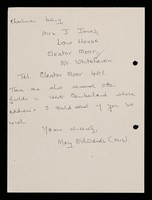 Mrs J Jones,
Low House
Cleator Moor,
Nr. Whitehaven
Tel. Cleator Moor
There are also several other
in West Cumberland whose
address I could send if you so
wish.
Yours sincerely,
May Edwards (Mrs)